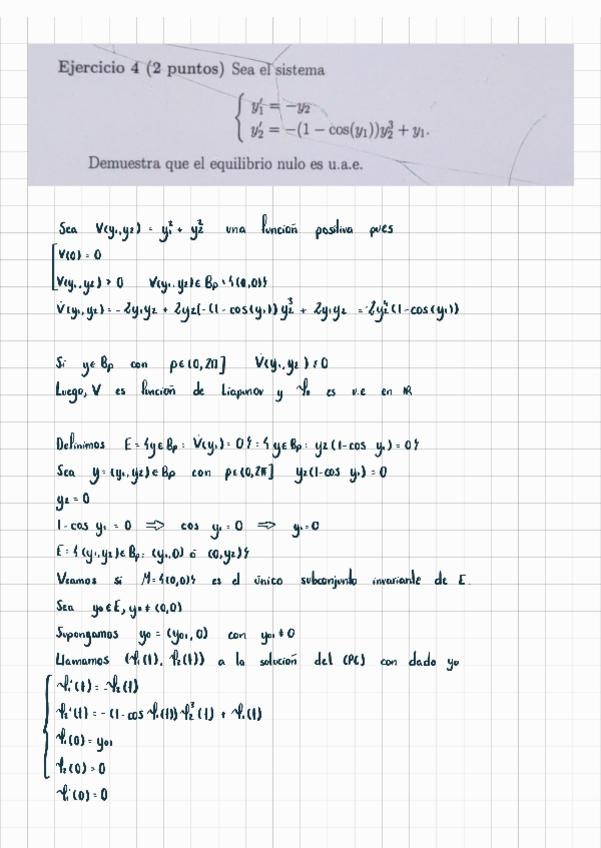 Ejercicio 4 (2 puntos) Sea el sistema
{ y₁' = −y₂
y₂' = −(1 − cos(y₁))y₂³ + y₁.
Demuestra que el equilibrio nulo es u.a.e.
Sea V(y₁,y₂) = y₁² + y₂² una función positiva pues
[ V(0) = 0
V(y₁,y₂) > 0 ∀(y₁,y₂) ∈ Bρ \ {(0,0)}
V̇(y₁,y₂) = −2y₁y₂ + 2y₂(−(1−cos(y₁)) y₂³ + 2y₁y₂ = −2y₂⁴(1−cos(y₁))
Si y ∈ Bρ con ρ ∈ (0,2π] V̇(y₁,y₂) ≤ 0
Luego, V es función de Liapunov y φ₀ es u.e en ℝ
Definimos E = {y ∈ Bρ : V̇(y) = 0} = {y ∈ Bρ : y₂(1−cos y₁) = 0}
Sea y = (y₁,y₂) ∈ Bρ con ρ ∈ (0,2π] y₂(1−cos y₁) = 0
y₂ = 0
1−cos y₁ = 0 ⟹ cos y₁ = 0 ⟹ y₁ = 0
E = {(y₁,y₂) ∈ Bρ : (y₁,0) ó (0,y₂)}
Veamos si M = {(0,0)} es el único subconjunto invariante de E.
Sea y₀ ∈ E, y₀ ≠ (0,0)
Supongamos y₀ = (y₀₁, 0) con y₀₁ ≠ 0
Llamamos (φ₁(t), φ₂(t)) a la solución del (PC) con dado y₀
{ φ₁'(t) = −φ₂(t)
φ₂'(t) = −(1−cos φ₁(t)) φ₂³(t) + φ₁(t)
φ₁(0) = y₀₁
φ₂(0) = 0
φ₁'(0) = 0